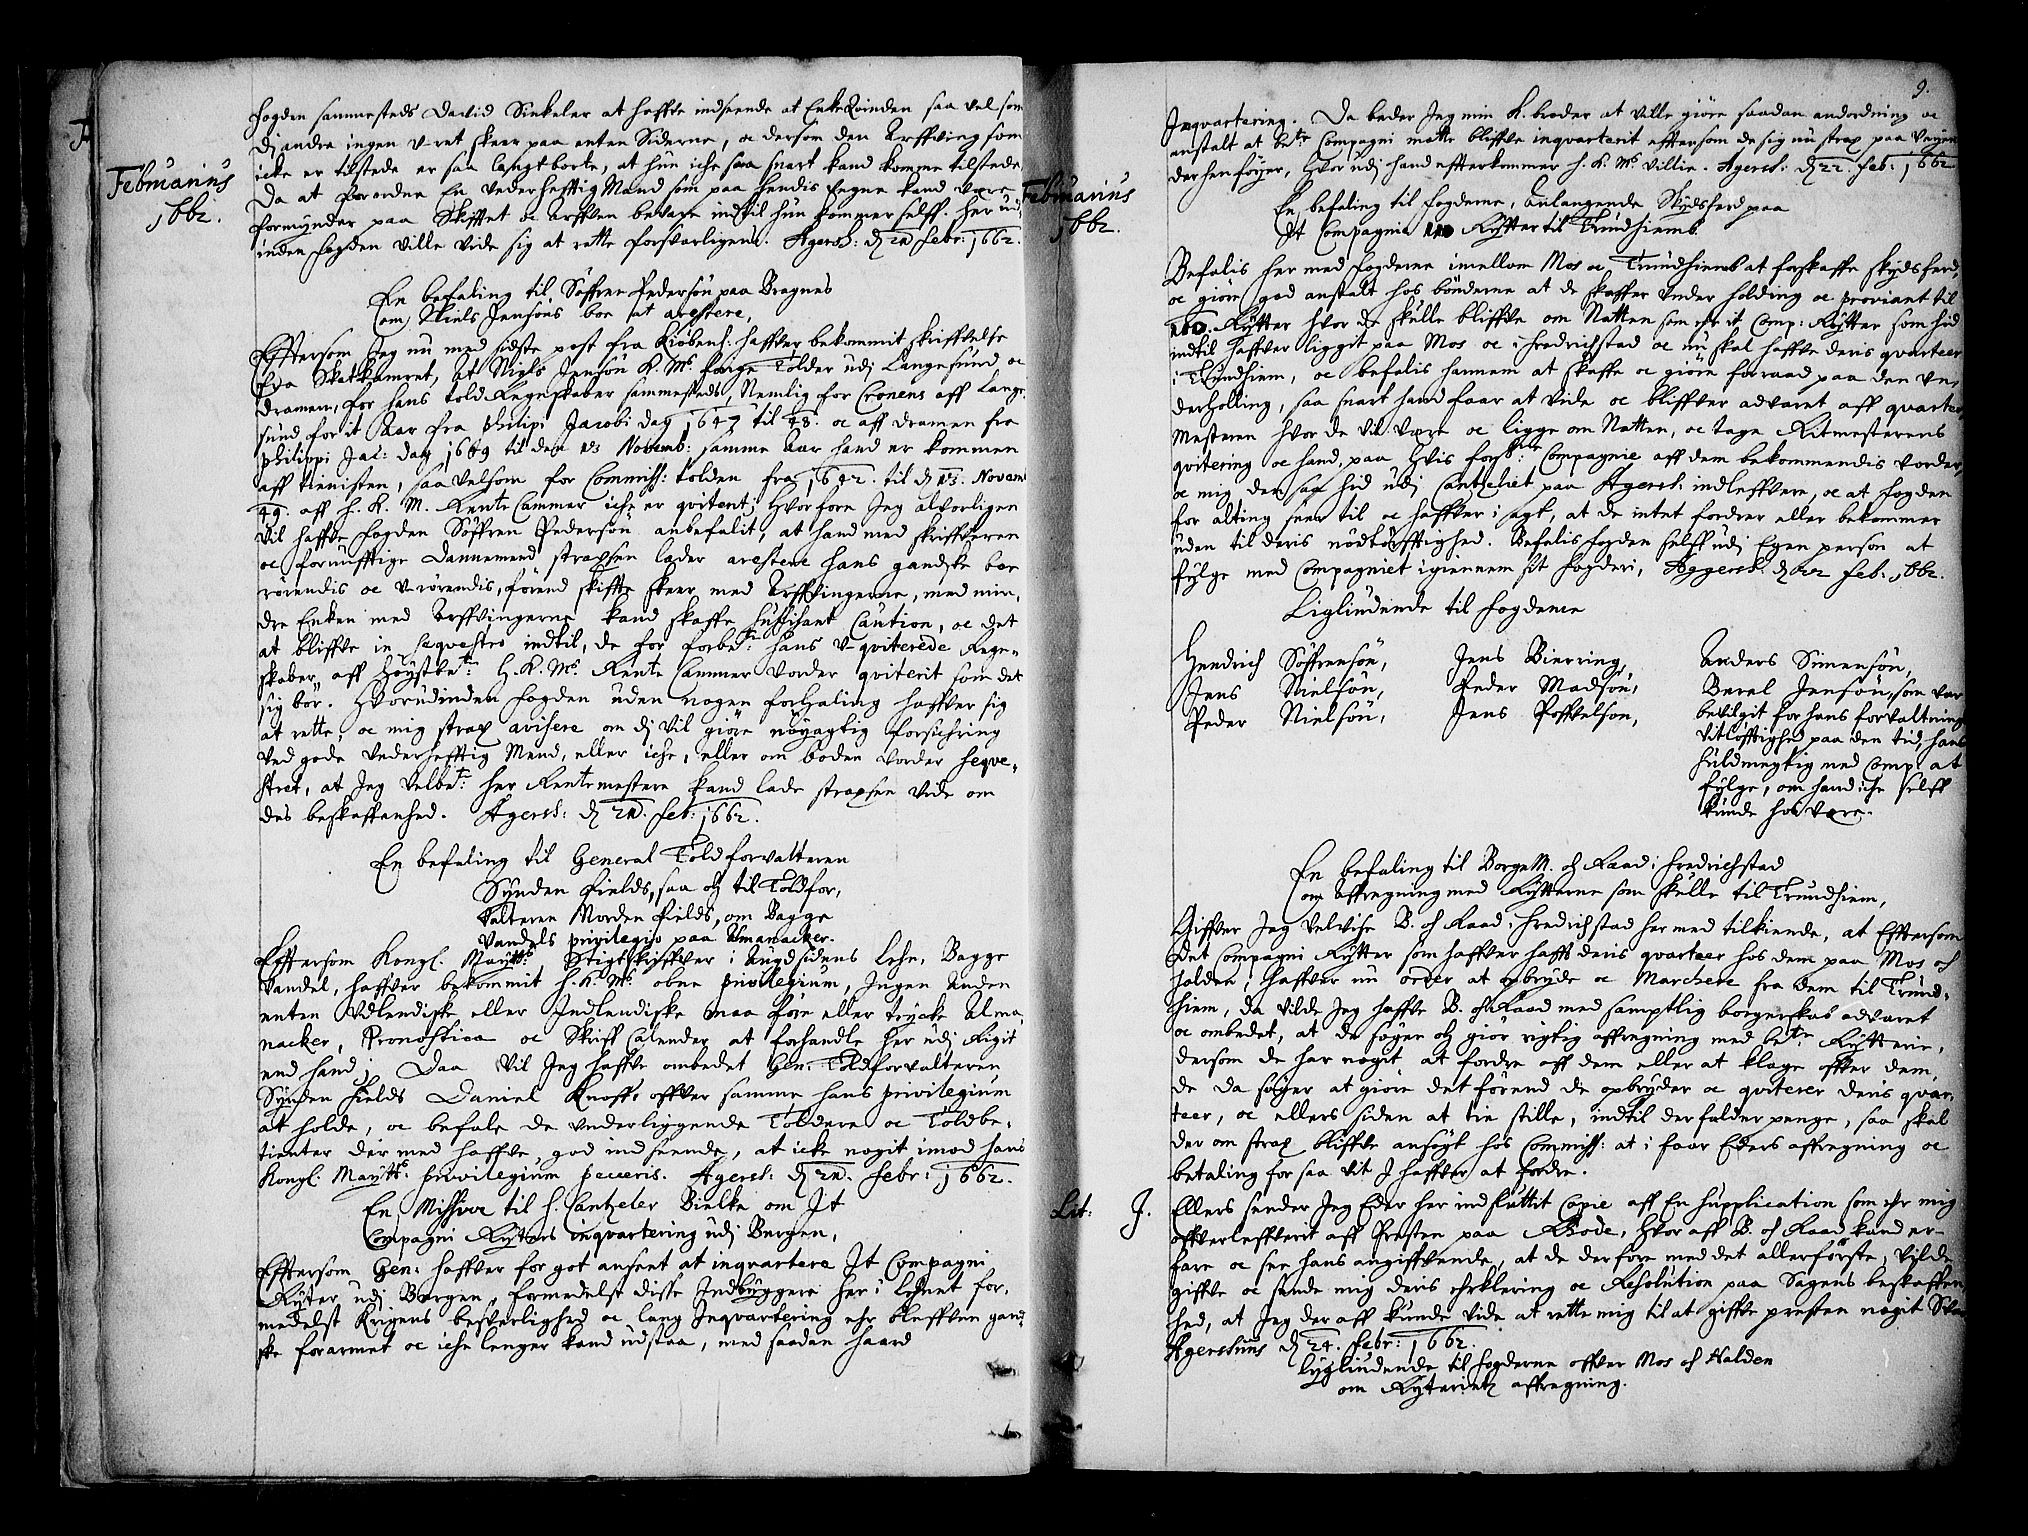 Februarius
1662.
fogden sammesteds David Sinkeler at haffve indseende at Enke Qvinden saa vel som
di andre ingen u-ret skeer paa enten Siderne, oc dersom den Arffving som
icke er tilstede er saa langt borte, at hun icke saa snart kand komme tilstede
da at forordne En vederhefftig Mand som paa hendis vegne kand være
formynder paa Skifftet oc Arffven bevare indtil hun kommer selff. her ud,
inden fogden ville vide sig at rette forsvarligend. Agersh: d 20 febr: 1662.
En befaling til Söffren Pedersön paa Bragnes
om Niels Jensöns boe at arestere,
Efftersom Jeg nu med sidste post fra Kiöbenh: haffver bekommit skriffvelse
fra Skatkamret, at Niels Jensön K. Ms. forige Tolder udj Langesund oc
Dramen, for hans told Regnskaber sammesteds, Nemlig for Cronens aff Lange-
sund for it Aar fra Philipi Jacobi dag 1647 til 48. oc aff Dramen fra
Philippi Jac: dag 1649 til den 13 Novemb: samme Aar hand er kommen
aff tienisten, saa velsom for Commiss: tolden fra 1642. til d 13. Novem
49. aff H. K. M. Rente Cammer icke er qvitert; Hvorfore Jeg alvorligen
vil haffve fogden Söffren Pedersön anbefalit, at hand med skriffveren
oc fornufftige Dannemend strapsen lader arestere hans gandske boe
rörendis oc u-rörendis, förend skiffte skeer med Arffvingerne, med min,
dre Enken med Arffvingerne kand skaffe suffisant Caution, oc det
at bliffve in seqvestro indtil, de for forbet: hans u-qviterede Regn-
skaber, aff höystbet: H. K. Ms. Rente Cammer vorder qviterit som det
sig bör. Hvorudinden fogden uden nogen forhaling haffver sig
at rette, oc mig strax avisere om di vil giöre nöyagtig forsichring
ved gode vederhefftig Mend, eller icke, eller om boden vorder seqve-
stret, at Jeg velbet: her Rentemestere kand lade strapsen vide om
des beskaffenhed. Agersh: d 20. feb: 1662.
En befaling til General Toldforvalteren
Synden fields, saa og til Toldfor,
valteren Norden fields, om Bagge
Vandels privilegio paa Almanacker.
Efftersom Kongl. Maytts. Stigtskriffver i Augdsidens Lehn, Bagge
Vandel, haffver bekommit H. K. Ms. obne privilegium, Ingen Anden
enten Udlendiske eller Indlendiske maa före eller trycke Alma,
nacker, Pronostica oc Skriff Calender at forhandle her udj Rigit
end hand; Daa vil Jeg haffve ombedet Gen: Toldforvalteren
Synden fields Daniel Knoff, offver samme hans privilegium
at holde, oc befale de underliggende Toldere oc Toldbe-
tienter der med haffve, god indseende, at icke nogit imod hans
Kongl: Maytts. privilegium peccerís. Agersh: d 20. febr: 1662.
En Missive til H. Cantzeler Bielke om It
Compagni Rytters inqvartering udj Bergen,
Efftersom Gen: haffver for got ansent at inqvartere It Compagni
Ryter udj Bergen, formedelst disse Indbyggere her i Lehnet for,
medelst Krigens besverlighed oc lang Inqvartering ehr bleffven gand-
ske forarmet oc icke lenger kand udstaa, med saadan haard
9.
Februarius
1662.
Inqvartering. Da beder Jeg min K. broder at ville giöre saadan andordning oc
anstalt at bete Compagni matte bliffve inqvarterit eftersom de sig nu strax paa Veyen
derhen föyer, Hvor udj hand efterkommer H. K. Ms. Villie. Agersh: d 22. feb: 1662
En befaling til fogderne, Anlangende Skydsferd paa
Et Compagnia Rytter til Trundhiemb
Befalis her med fogderne imellom Mos oc Trundhiemb at forskaffe skydsferd,
oc giöre god anstalt hos bönderne at de skaffer under holding oc proviant til
Rytter hvor de skulle bliffve om Natten som ehr it Comp: Rytter som hid
indtil haffver liggit paa Mos oc i fredrichstad oc nu skal haffve deris qvarteer
i Trundhiem, oc befalis hannem at skaffe oc giöre forraad paa den un-
derholling, saa snart hand faar at vide oc bliffver advaret aff qvarter
Mesteren hvor de vil være oc ligge om Natten, oc tage Ritmesterens
qvitering oc hand, paa hvis forbte: Compagnie aff dem bekommendis vorder,
oc mig den saa hid udj Cantzeliet paa Agersh. indleffvere, oc at fogden
for alting seer til oc haffver i agt, at de intet fordrer eller bekommer
uden til deris nödtörfftighed. Befalis fogden selff udj Egen person at
fylge med Compagniet igiennem sit fogderi, Aggersh. d 22 feb: 1662.
Liglindende til fogderne
Hendrich Söffrensön,
Jens Nielsön,
Peder Nielsön,
Jens Bierring,
Peder Madsön,
Jens Poffvelson,
Anders Simensön,
Berel Jensön, som var
bevilgit for hans forvaltning
vitlöfftighed paa den tid, hans
fuldmegtig med Comp: at
fylge, om hand iche selff
kunde hos være.
En befaling til BorgeM. og Raad i fredrichstad
om Affregning med Rytterne som skulle til Trundhiem,
Giffver Jeg velvise B. og Raad i fredrichstad her med tilkiende, at Efftersom
det Compagni Rytter som haffver hafft deris qvarteer hos dem paa Mos og
Halden, haffver nu order at opbryde oc Marchere fra dem til Trund-
hiem, da vilde Jeg haffve B. og Raad med samptlig borgerskab advaret
oc ombedet, at de söger og giör rigtig affregning med bete Rytterie,
dersom de har nogit at fordre aff dem eller at klage offver dem,
de da söger at giöre det förend de opbryder oc qviterer deris qvar,
teer, oc ellers siden at tie stille, indtil der falder penge, saa skal
der om strax bliffve ansögt hos Commiss: at i faar Eders affregning oc
betaling for saa vit J haffver at fordre.
Lit: J. Ellers sender Jeg Eder her indsluttit Copie aff En supplication som ehr mig
offverleffverit aff Presten paa Rode, hvor aff B. og Raad kand er-
fare oc see hans angiffvende, at de derfore med det allerförste, vilde
giffve oc sende mig deris erklering oc Resolution paa Sagens beskaffen
hed, at Jeg der aff kunde vide at rette mig til at giffve presten nogit Svar
Agershuus d 24. febr: 1662.
Lyglindende til fogderne offver Mos og Halden
om Ryteriets affregning.